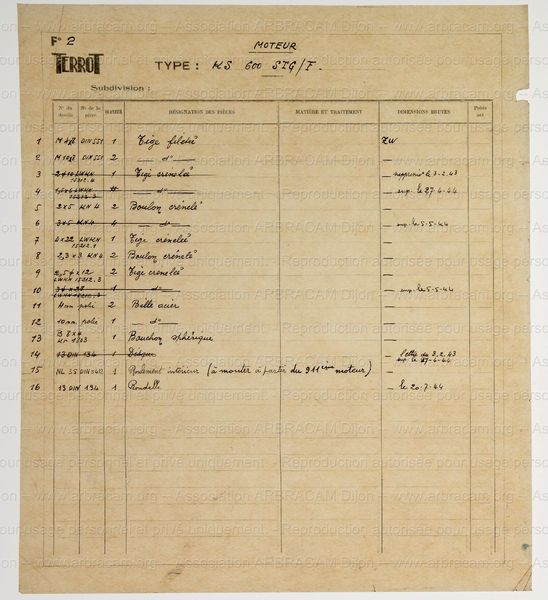 F° 2
MOTEUR
TERROT
TYPE : KS 600 STG/F.
Subdivision :
N° du dessin N° de la pièce NOMBRE DÉSIGNATION DES PIÈCES MATIÈRE ET TRAITEMENT DIMENSIONS BRUTES Poids net
1 DIN 551 1 Tige filetée ZW
2 DIN 551 2 — d° — —
3 1 Tige crenelée — supprimé le 3.2.43
4 — d° — — sup. le 27-4-44
5 2x5 KN 4 2 Boulon crénelé —
6 3x5 KN 4 4 — d° — — sup. le 5-5-44
7 LWKN 15212.1 1 Tige crenelée —
8 2,3 x 3 KN 4 2 Boulon crénelé —
9 2,5 x 12 LWKN 15212.3 2 Tige crenelée —
10 1 — d° — — sup. le 5.5.44
11 4 mm poli 2 Bille acier —
12 10 mm poli 1 — d° — —
13 B 8x4 Kr 1783 1 Bouchon sphérique —
14 13 DIN 134 1 — lettre du 3.2.43 sup. le 27-4-44
15 NL 35 DIN 5412 1 Roulement intérieur (à monter à partir du 911ème moteur) —
16 13 DIN 134 1 Rondelle — le 20-7-44
Reproduction autorisée pour usage personnel et privé uniquement – www.arbracam.org – Association ARBRACAM Dijon